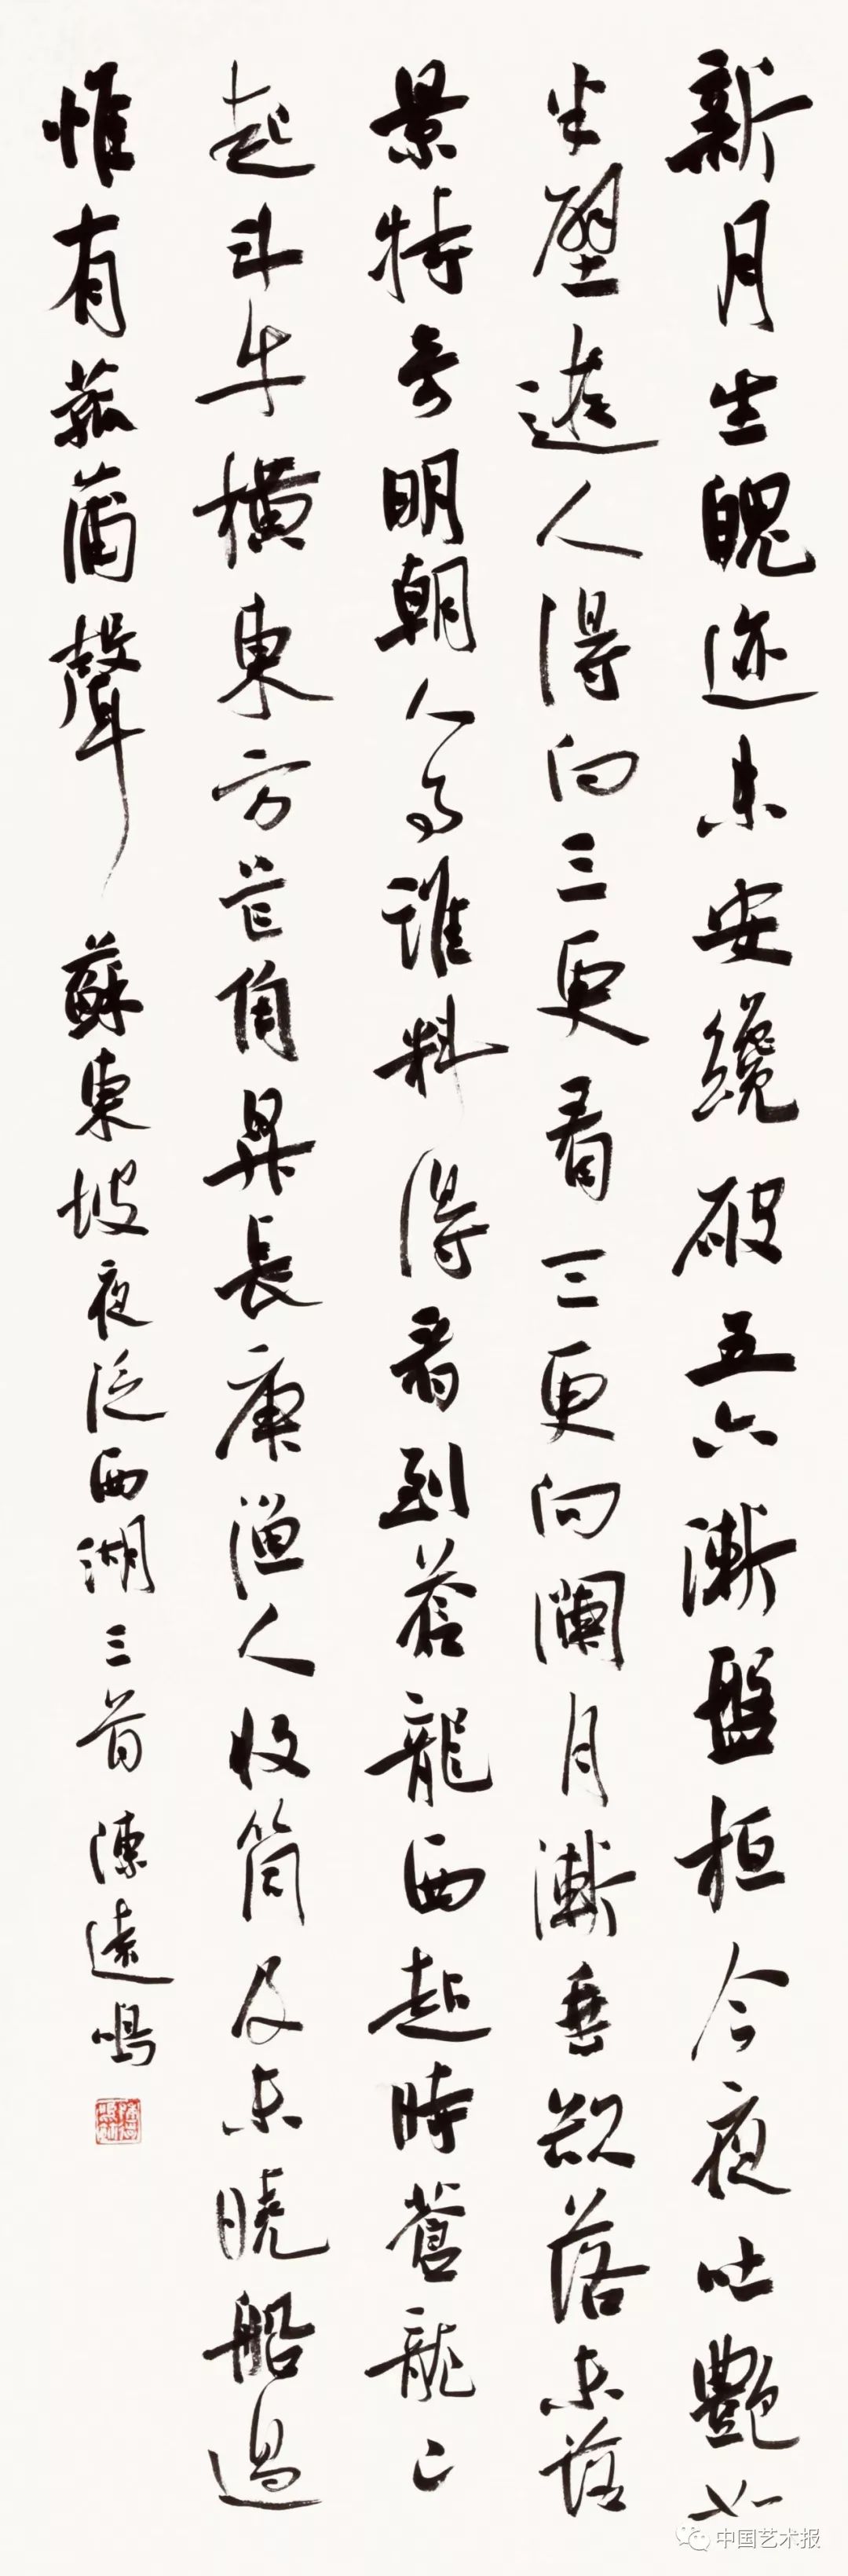 新月生魄迹未安纔破五六漸盤桓今夜吐艷如
半壁遊人得向三更看三更向闌月漸垂欲落未落
景特奇明朝人事誰料得看到蒼龍西起時蒼龍已
起斗牛橫東方芒角昇長庚漁人收筒及未曉船過
惟有菰蒲聲 蘇東坡夜泛西湖三首 陳遠鳴
中国艺术报